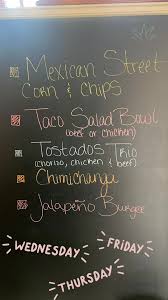 Mexican Street
Corn & Chips
Taco Salad Bowl
(beef or chicken)
Tostados Trio
(chorizo, chicken & beef)
Chimichanga
Jalapeño Burger
WEDNESDAY
FRIDAY
THURSDAY